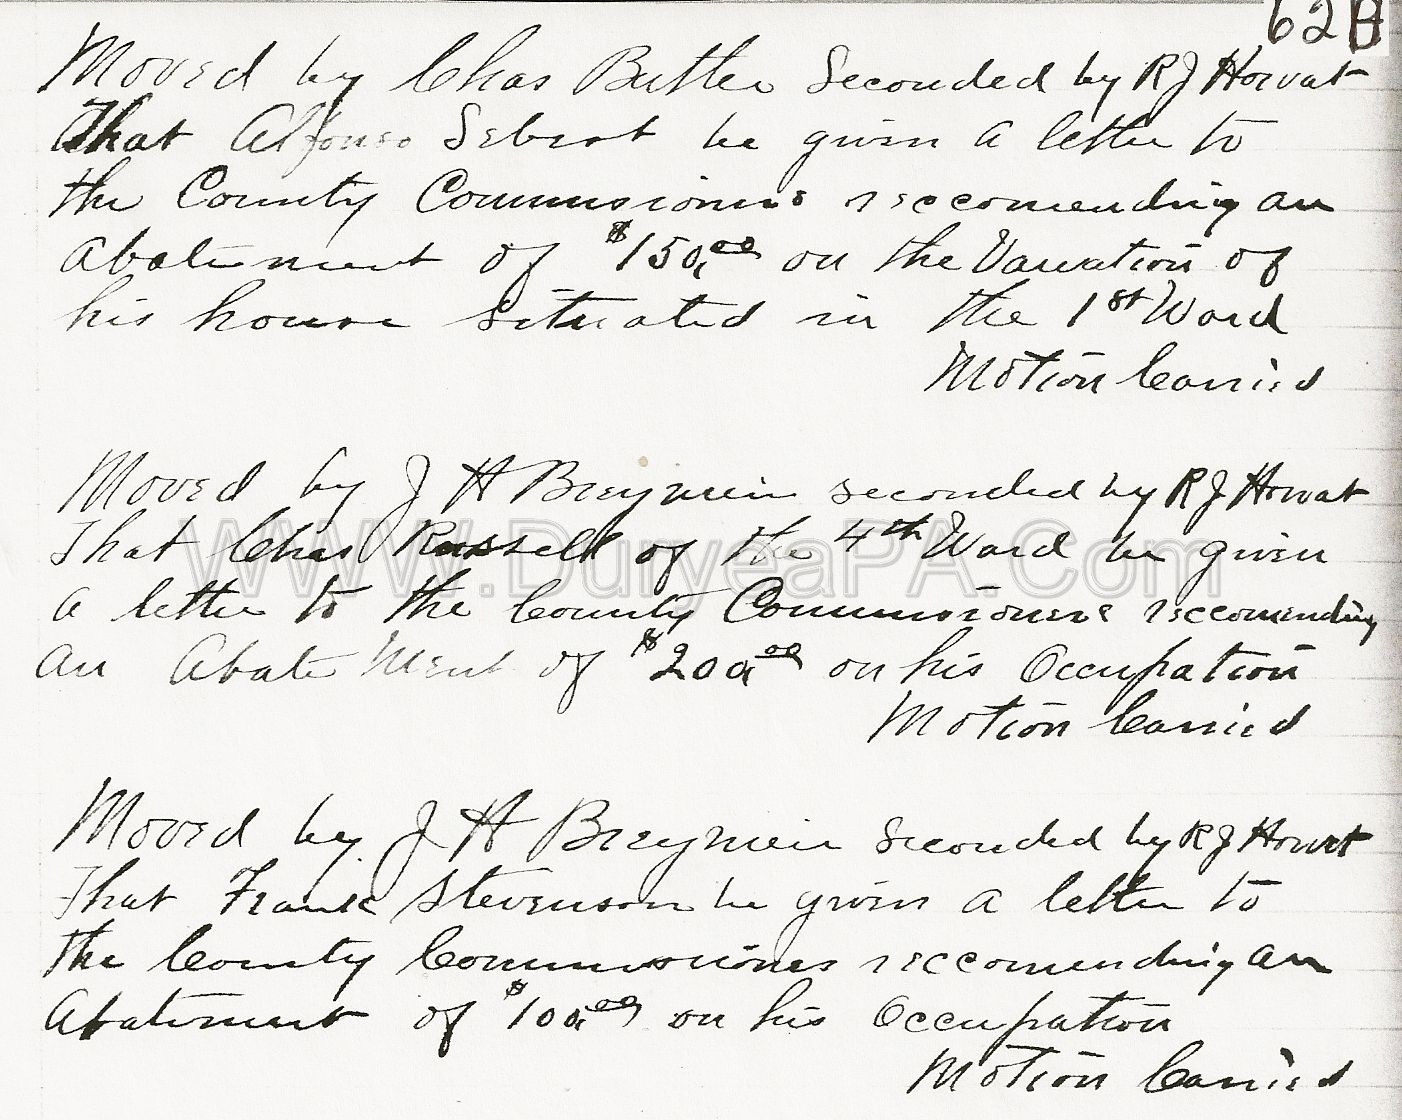 62
Moved by Chas Butler Seconded by R J Horvat
That Alfonso Sebast be given a letter to
the County Commissioners reccomending an
Abatement of $150,00 on the Valuation of
his house situated in the 1st Ward
Motion Carried
Moved by J H Breymeir seconded by R J Horvat
That Chas Russell of the 4th Ward be given
a letter to the County Commissioners reccomending
an Abatement of $200,00 on his Occupation
Motion Carried
Moved by J H Breymeir Seconded by R J Horvat
That Frank Stevenson be given a letter to
the County Commissioners reccomending an
Abatement of $100,00 on his Occupation
Motion Carried
WWW.DuryeaPA.Com